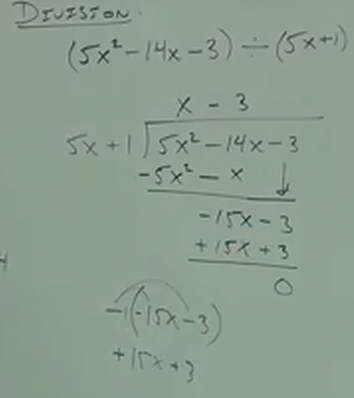 DIVISION.
(5x² - 14x - 3) ÷ (5x+1)
x - 3
5x + 1 5x² - 14x - 3
-5x² - x
-15x - 3
+15x + 3
0
-1(-15x - 3)
+15x + 3